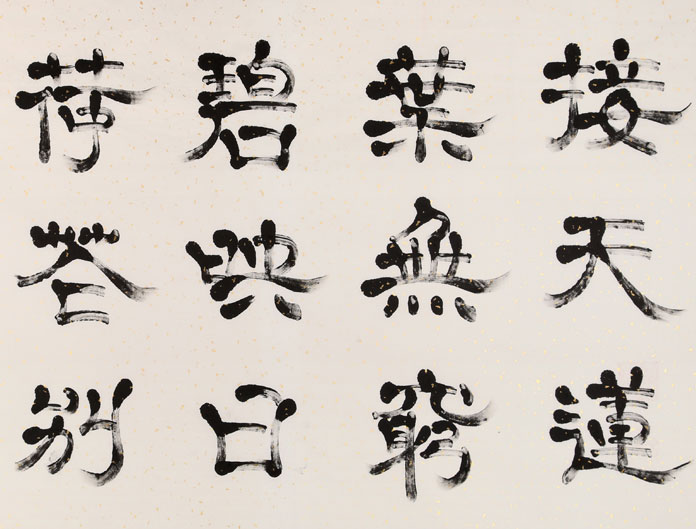 接天蓮
葉無窮
碧映日
荷花別